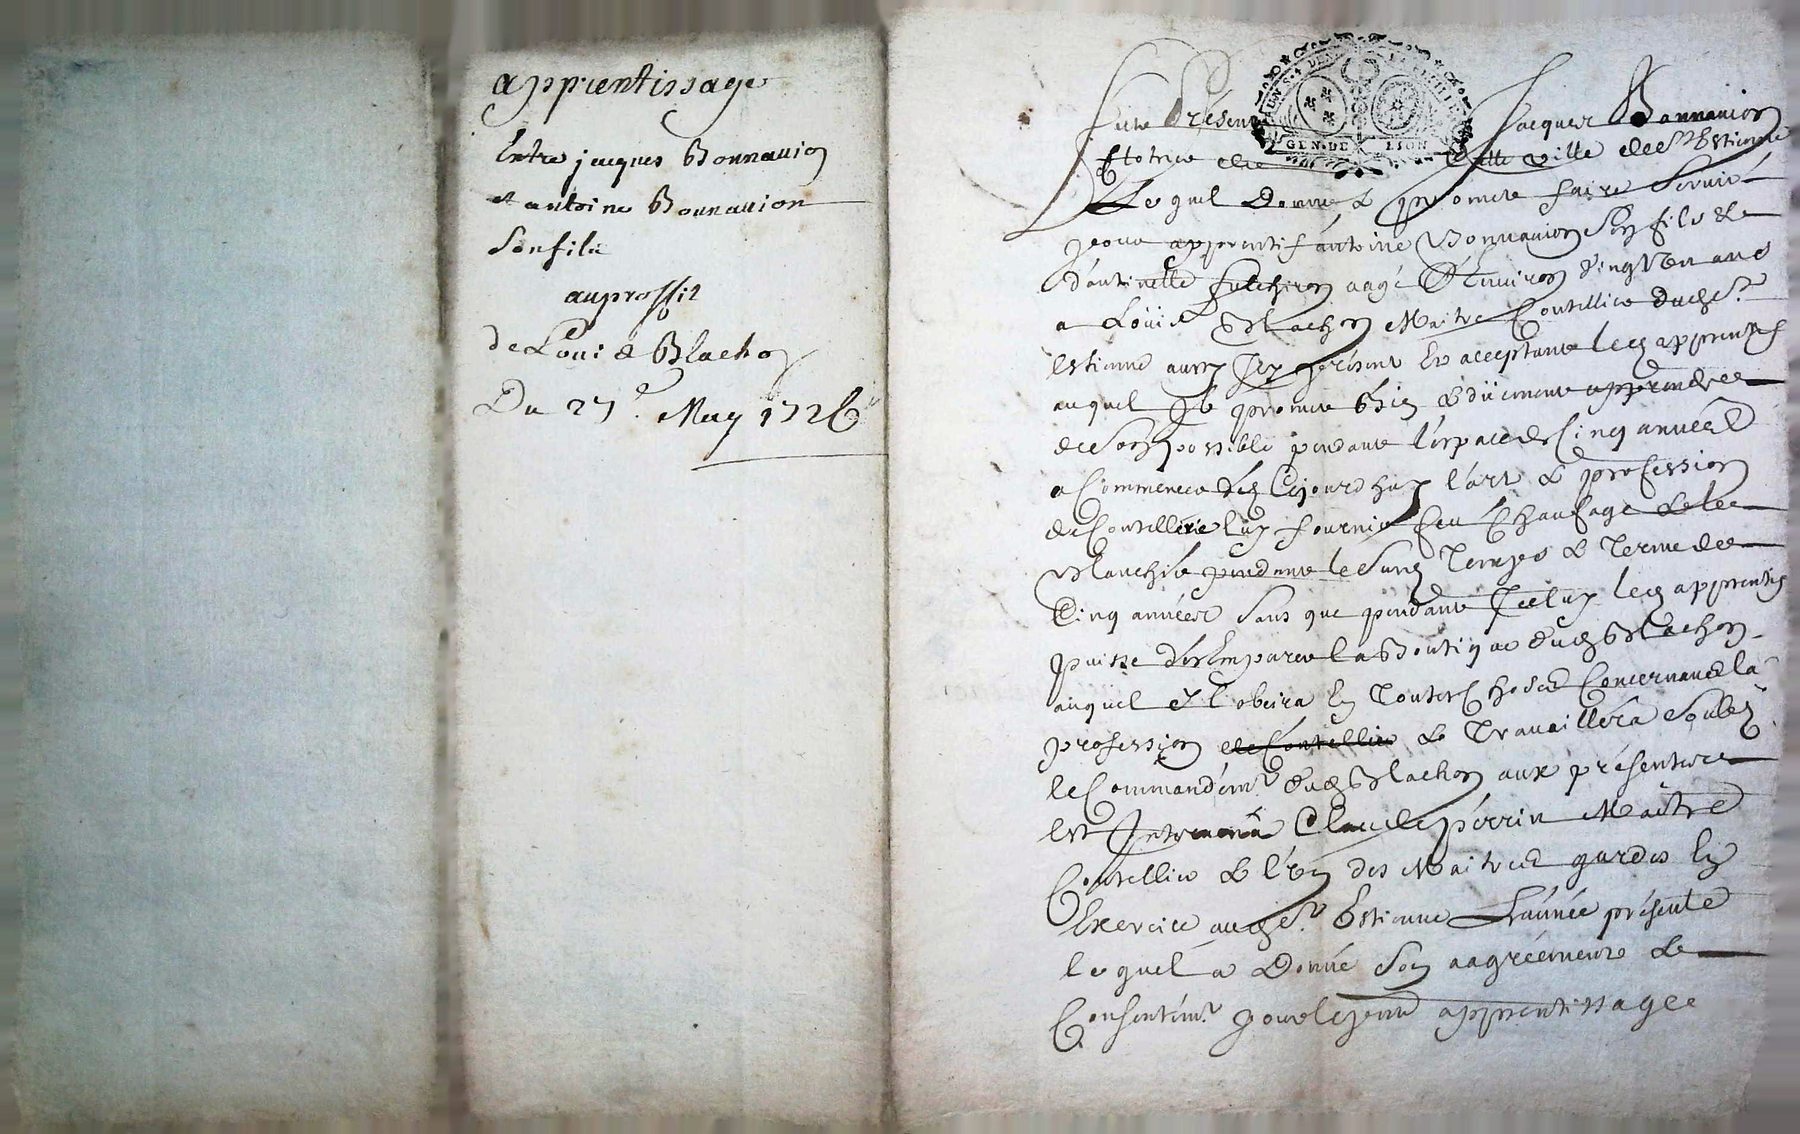 apprentissage
Entre jacques Bonnauion
et antoine Bonnauion
Son fils
au proffit
de Louis Blachon
Du 27e. May 1726
GEN. DE LION
fut Présent Jacques Bonnauion
de cette ville de St Estienne
Lequel Donne & promet faire Seruir
pour apprentif antoine Bonnauion Son fils &
d'antoinette fulchiron aagé D'Enuiron Vingt Un ans
a Loüis Blachon Maitre Coutellier dud St
Estienne aussy Icy présent & acceptant led apprentif
auquel Il promet Bien & düement apprendre
de Son possible pendant l'espace de Cinq années
a Commencer dez Cejourdhuy l'art & profession
de Coutellerie luy fournir feu Chaufage & le
Blanchir pendant lesd Temps & Terme de
Cinq années Sans que pendant Iceluy led apprentif
puisse désEmparer la Boutique dud Blachon
auquel Il obeira En Toutes Choses Concernant lad
profession de Coutellier & Trauaillera Soubz
le Commandemt dud Blachon aux présentes
Est Interuenu Claude périn Maître
Coutellier & l'Un des Maitres gardes En
Exercice aud St. Estienne L'année présente
lequel a Donné Son aagréement &
Consentemt pour le présent apprentissage